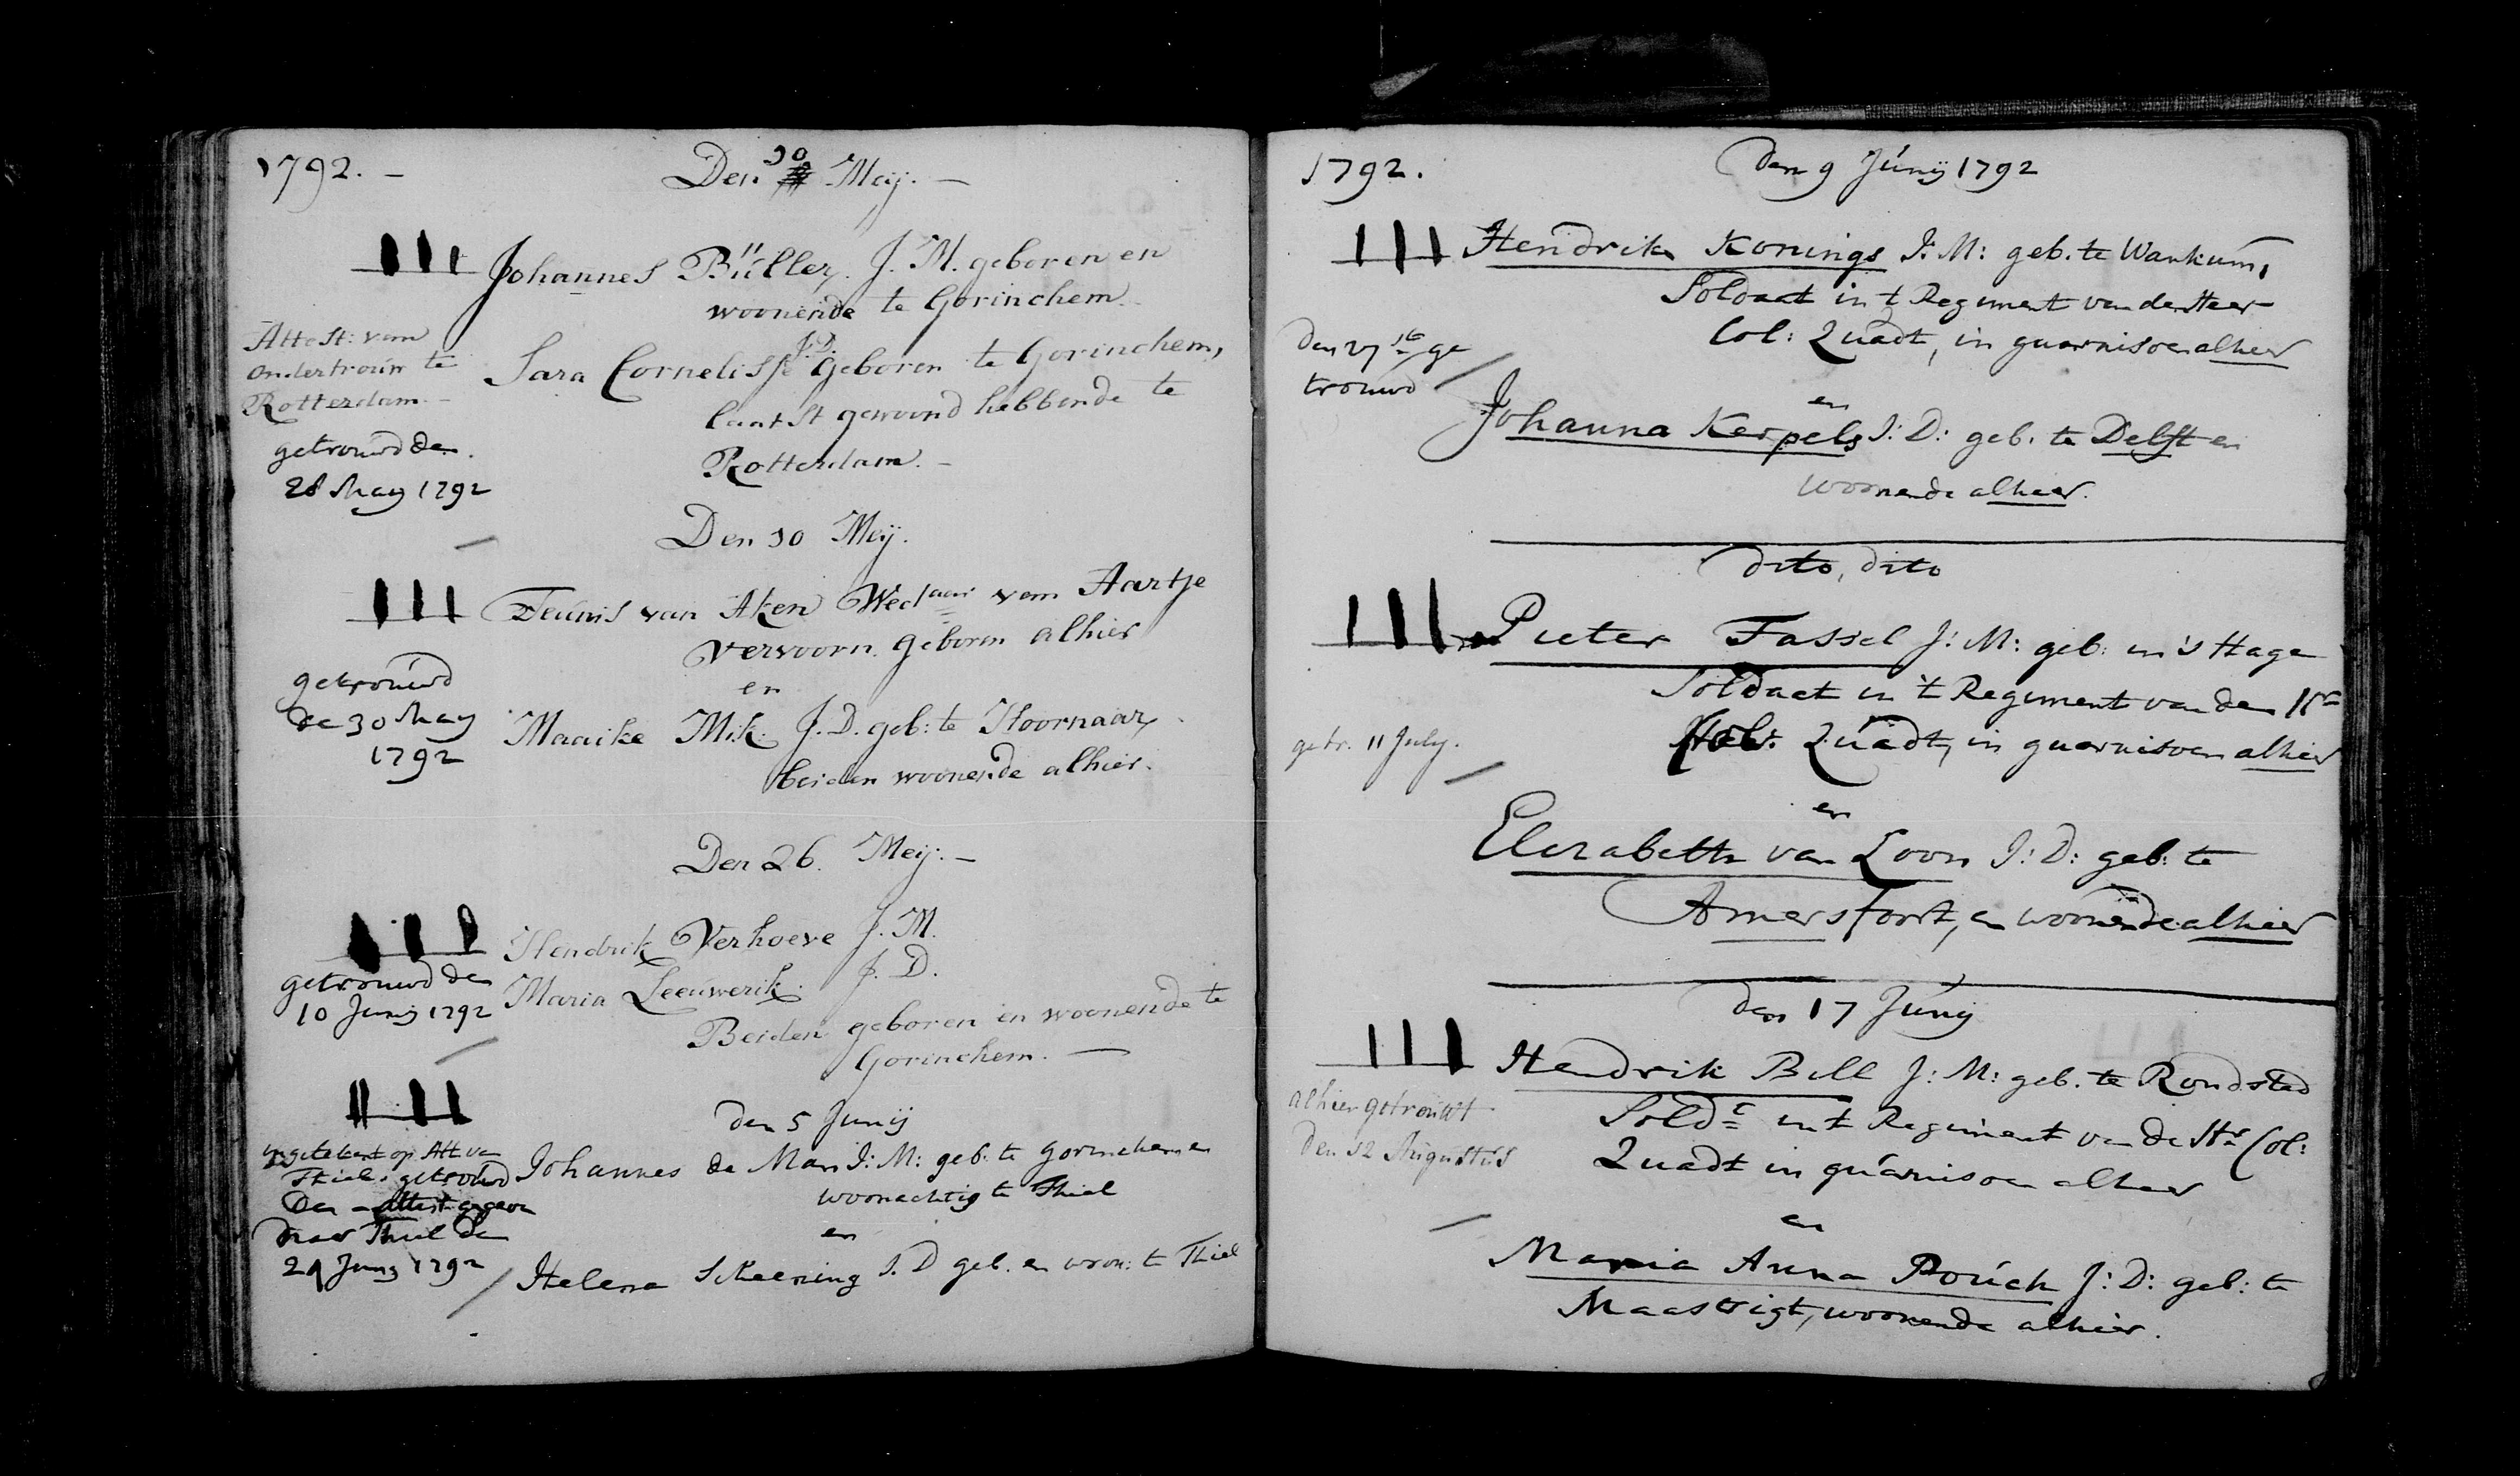 1792. -
Den 10 Meij. -
Johannes Büller, J. M. geboren en
woonende te Gorinchem.
Attest: van
ondertrouw te
Rotterdam. -
getrouwd den
28 May 1792
J.D.
Sara Cornelisse geboren te Gorinchem,
laatst gewoond hebbende te
Rotterdam. -
Den 10 Meij.
Teunis van Aken Wedaar van Aartje
Vervoorn geboren alhier
en
getrouwd
de 30 May
1792
Maaike Mik. J. D. geb: te Hoornaar,
beiden woonende alhier.
Den 26. Meij. -
Hendrik Verhoeve J. M.
Maria Leeuwerik. J. D.
Beiden geboren en woonende te
Gorinchem. -
getrouwd de
10 Junij 1792
den 5 Junij
ingetekent op Att van
Thiel. getrouwd
den - attest gegeven
naar Thiel den
29 Junij 1792
Johannes de Man J: M: geb: te Gorinchem en
woonachtig te Thiel
en
Helena Scheering J. D geb. en woon: te Thiel
1792.
den 9 Junij 1792
Hendrik Konings J: M: geb. te Wankum,
Soldaat in t Regiment van den Heer
Col: Quadt, in guarnisoen alhier
den 27ste ge
trouwd
en
Johanna Kerpels J: D: geb. te Delft en
woonende alhier.
dito, dito
Pieter Fassel J: M: geb: in 's Hage
Soldaat in 't Regiment van den Hr
Col: Quadt, in guarnisoen alhier
getr. 11 July.
en
Elizabeth van Loon J: D: geb: te
Amersfort, en woonende alhier
den 17 Junij
Hendrik Bill J: M: geb. te Rondsted
Soldt in t Regiment van de Hr Col:
Quadt in guarnisoen alhier
alhier getrouwt
den 12 Augustus
en
Maria Anna Pouch J: D: geb: te
Maastrigt, woonende alhier.